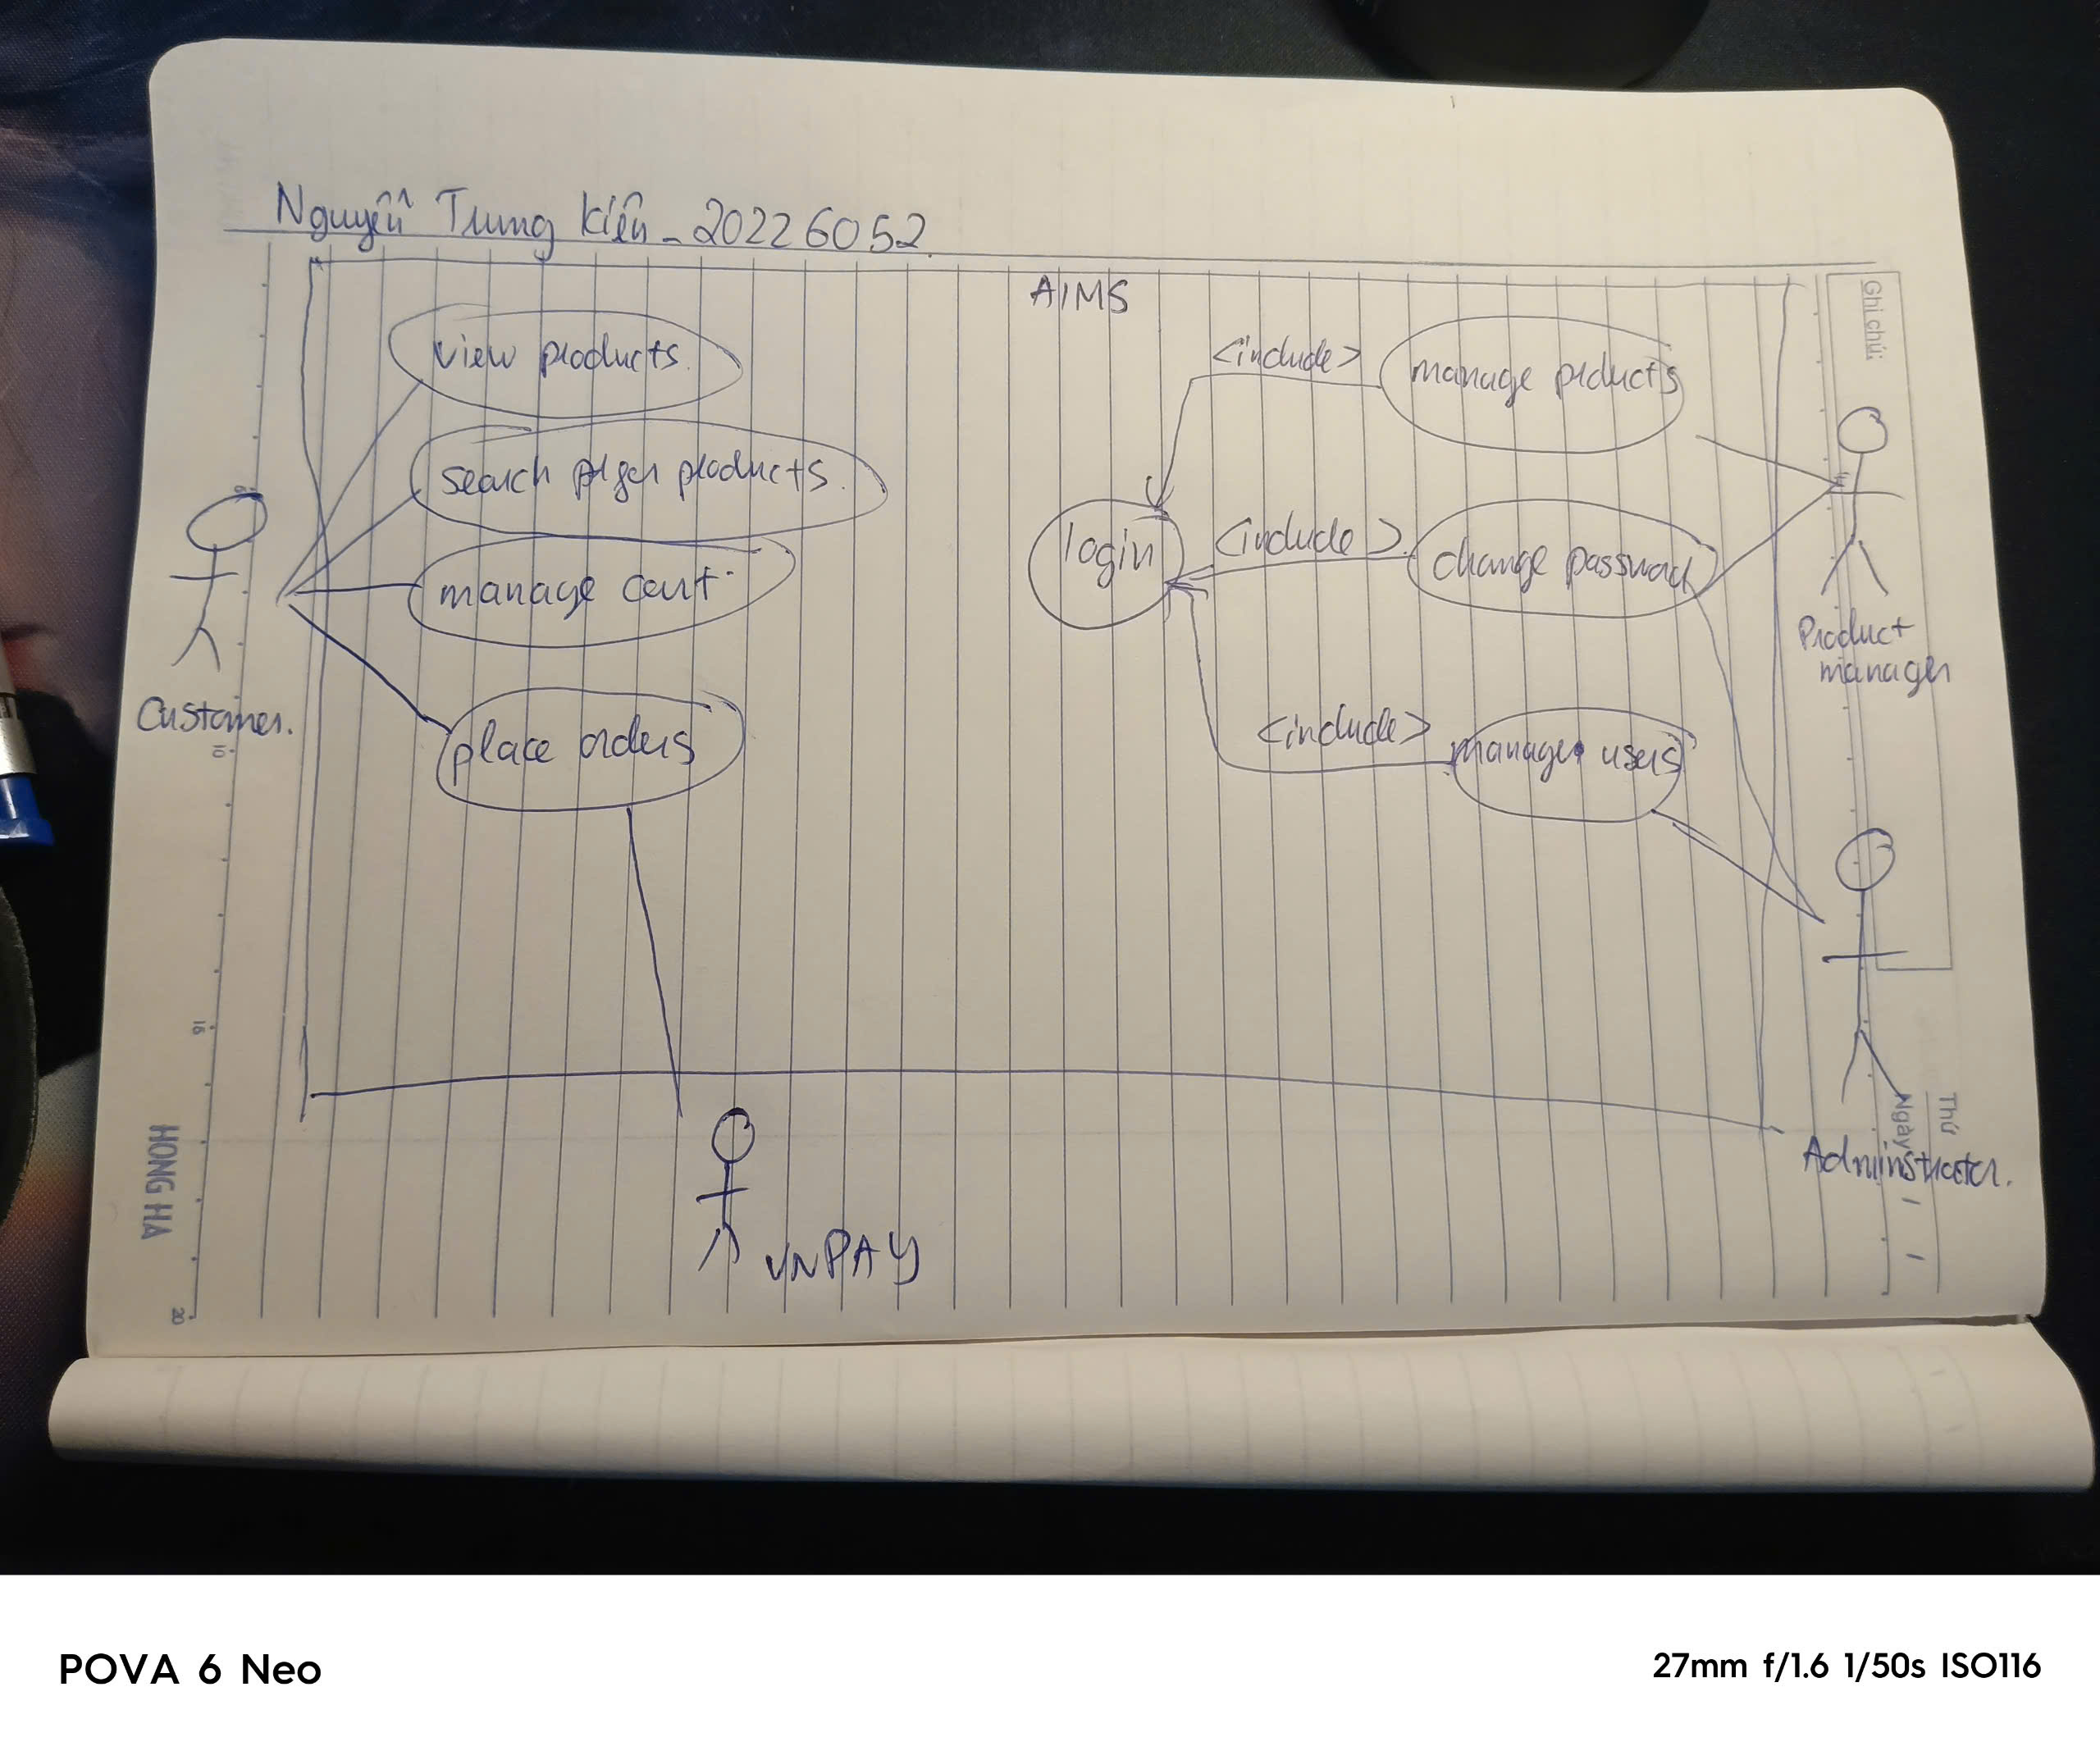 Nguyễn Trung Kiên - 20226052
AIMS
view products.
search products.
manage cart
place orders
Customer.
VNPAY
<include>
manage prducts
login
<include>
change password
<include>
manage users
Product
manager
Adminstrator.
Ghi chú:
Thứ
Ngày
10
15
20
HONG HA
POVA 6 Neo
27mm f/1.6 1/50s ISO116